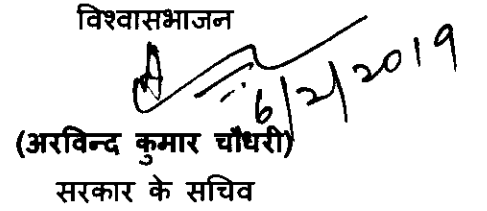 विश्वासभाजन
6/2/2019
(अरविन्द कुमार चौधरी)
सरकार के सचिव